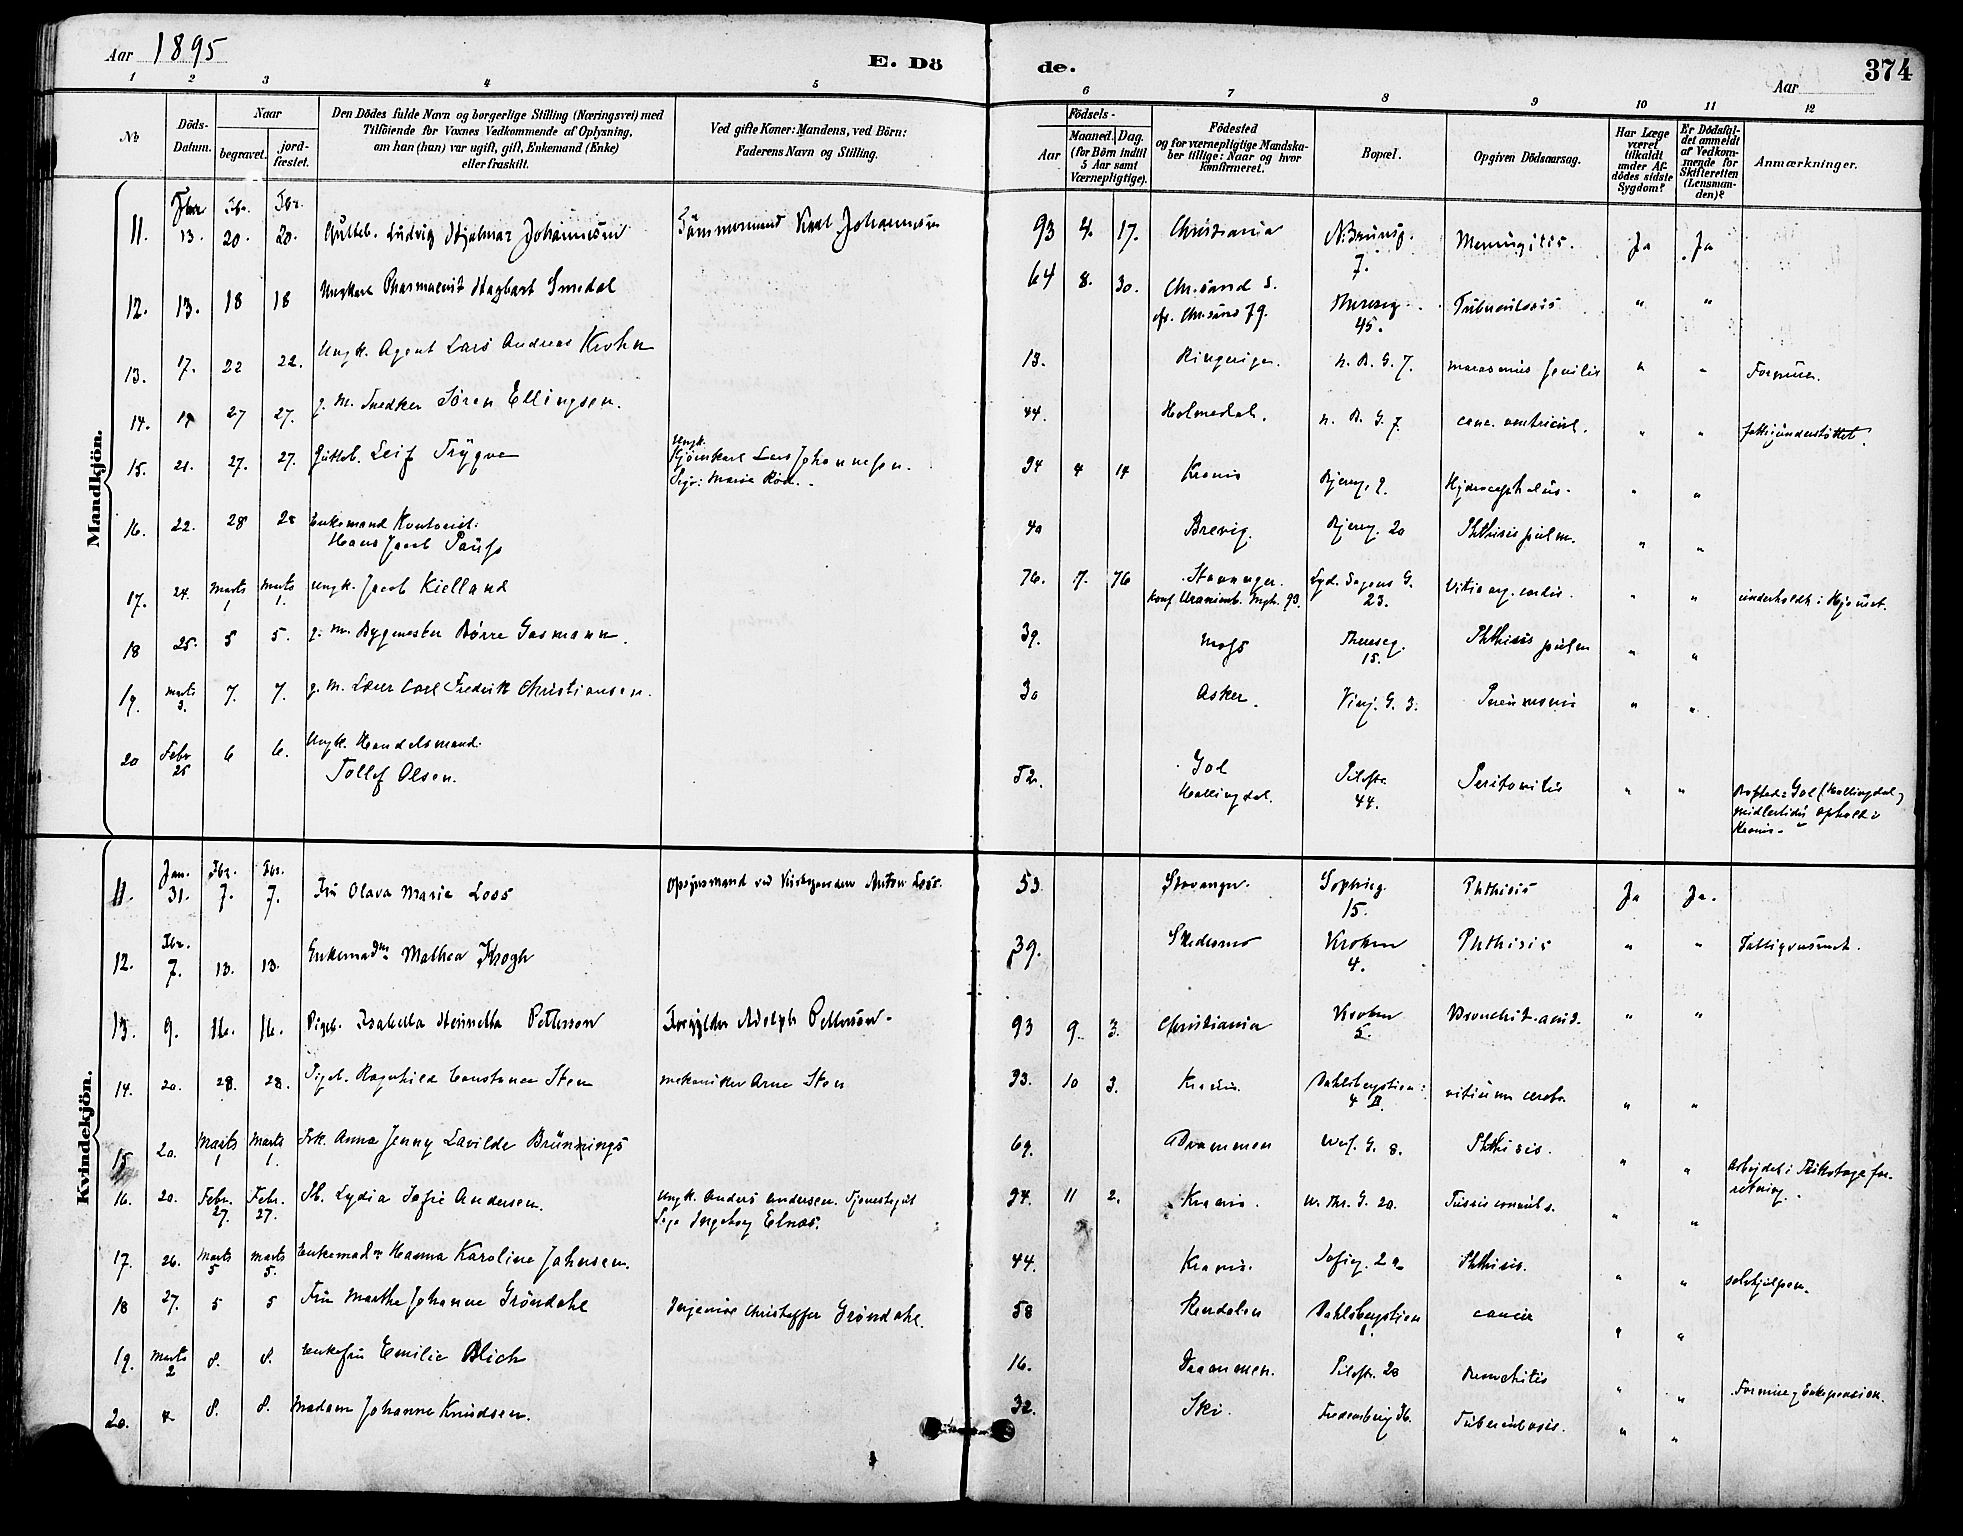 Aar 1895
E. Dö
de.
Aar
374
1 2 3 4 5 6 7 8 9 10 11 12
No
Döds-
Datum.
Naar
begravet.
jord-
fæstet.
Den Dödes fulde Navn og borgerlige Stilling (Næringsvei) med
Tilföiende for Voxnes Vedkommende af Oplysning,
om han (hun) var ugift, gift, Enkemand (Enke)
eller fraskilt.
Ved gifte Koner: Mandens, ved Börn:
Faderens Navn og Stilling.
Födsels-
Aar
Maaned. Dag.
(for Börn indtil
5 Aar samt
Værnepligtige).
Födested
og for værnepligtige Mandska-
ber tillige: Naar og hvor
konfirmeret.
Bopæl.
Opgiven Dödsaarsag.
Har Læge
været
tilkaldt
under Af-
dödes sidste
Sygdom?
Er Dödsfal-
det anmeldt
af Vedkom-
mende for
Skifteretten
(Lensman-
den)?
Anmærkninger.
Mandkjön.
Fbr. Fbr.
11. 13. 20. 20. Guttеb. Ludvig Hjalmar Johannesen Tömmermand Karl Johannesen 93 4. 17. Christiania 7. Meningitis. Ja Ja
12. 13. 18 18 Ungkarl Pharmaceut Hagbart Smedal 64 8. 30. Chr.sand S. Thereseg. 45. Tuberculosis " "
13. 17. 22 22. Ungk. Agent Lars Andreas Krohn 13. Ringerige. n. B. G. 7. marasmus senilis " " Formue.
14. 27 27. g. M. Snedker Sören Ellingsen. 44. Holmedal. n. B. G. 7. canc. ventricul. " " fattigunderstöttet.
15. 21. 27. 27. Gutteb. Leif Trygve
Ungk.
Lars Johannesen.
Pige: Marie Röd. 94 4 14 Krania Bjerreg. 9. Hydrocephalus. " "
16. 22. 28 28 Enkemand Kontorist:
Hans Jacob Paus 40 Brevig. Bjerreg. 20 Phthisis pulm. " "
17. 24. Marts 1 Marts 1. Ungk. Jacob Kielland 76. 7. 76 Stavanger. Lyd. Sagens G. 23. Vitio org. cordis. " " underholdt i Hjemmet.
18 25. 5 5. g. M. Bygmester Börre Gasmann. 39. Moss Thereseg. 15. Phthisis pulm " "
19. Marts 3. 7. 7. g. M. Carl Fredrik Christiansen. 30 Asker. Vinj. G. 3. Pneumonia " "
20 Febr 25 6 6. Ungk. Handelsmand.
Tollef Olsen. 52. Gol
Hallingdal. Pilestr. 44. Peritonitis " " Bosted: Gol (Hallingdal)
midlertidig ophold i
Krania.
Kvindekjön.
11. Jan. 31. Fbr. 7. Fbr. 7. Fru Olava Marie Loss Opsynsmand ved Kirkegaarden Anton Loss. 53 Stavanger. Sophieg. 15. Phthisis Ja Ja.
12. Fbr. 7. 13. 13. Enkemadm Mathea Krogh 39. Skedsmo Kroken 4. Phthisis " " Fattigvæsenet.
13. 9. 16. 16. Pigeb. Isabella Henriette Petterson Forgylder Adolph Petterson. 93 9. 3. Christiania Kroken 5. Bronchit. acut. " "
14. 20. 28. 28. Pigeb. Ragnhild Constance Sten mekaniker Arne Sten 93. 10 3. Krania. Dahlsbergstien 4 II. vitium cerebr. " "
15 20. Marts 1 Marts 1. Frk. Anna Jenny Lavilde Brünnings 69. Drammen Wess. G. 8. Phthisis. " "
16. 20. Febr. 27. Febr. 27. Pb. Lydia Sofie Andersen. Ungk. Anders Andersen. Tjenestegut
Pige Ingeborg Elnæs. 94. 11 2. Krania. W. Thr. G. 20. Tussis convuls. " "
17. 26. Marts 5 Marts 5. Enkemadm Hanna Karoline Johnsen. 44. Krania. Sofieg. Phthisis. " " selvhjulpen.
18 27. 5 5 Fru Marthe Johanne Gröndahl Ingeniör Christoffer Gröndahl. 58 Rendalen Dahlsbergstien 1. cancer " "
19. Marts 2 8. 8. Enkefru Emilie Blich 16. Drammen. Pilestr. Bronchitis " " Formue, Enkepension.
20. 8. 8. Madam Johanne Knudsen. 32. Ski. Tuberculosis. " "